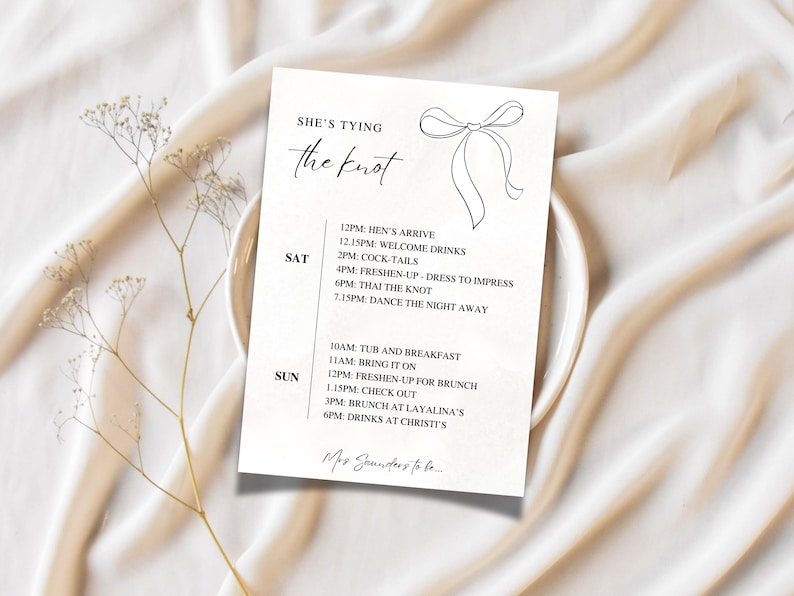 SHE'S TYING
the knot
SAT
12PM: HEN'S ARRIVE
12.15PM: WELCOME DRINKS
2PM: COCK-TAILS
4PM: FRESHEN-UP - DRESS TO IMPRESS
6PM: THAI THE KNOT
7.15PM: DANCE THE NIGHT AWAY
SUN
10AM: TUB AND BREAKFAST
11AM: BRING IT ON
12PM: FRESHEN-UP FOR BRUNCH
1.15PM: CHECK OUT
3PM: BRUNCH AT LAYALINA'S
6PM: DRINKS AT CHRISTI'S
Mrs Saunders to be...